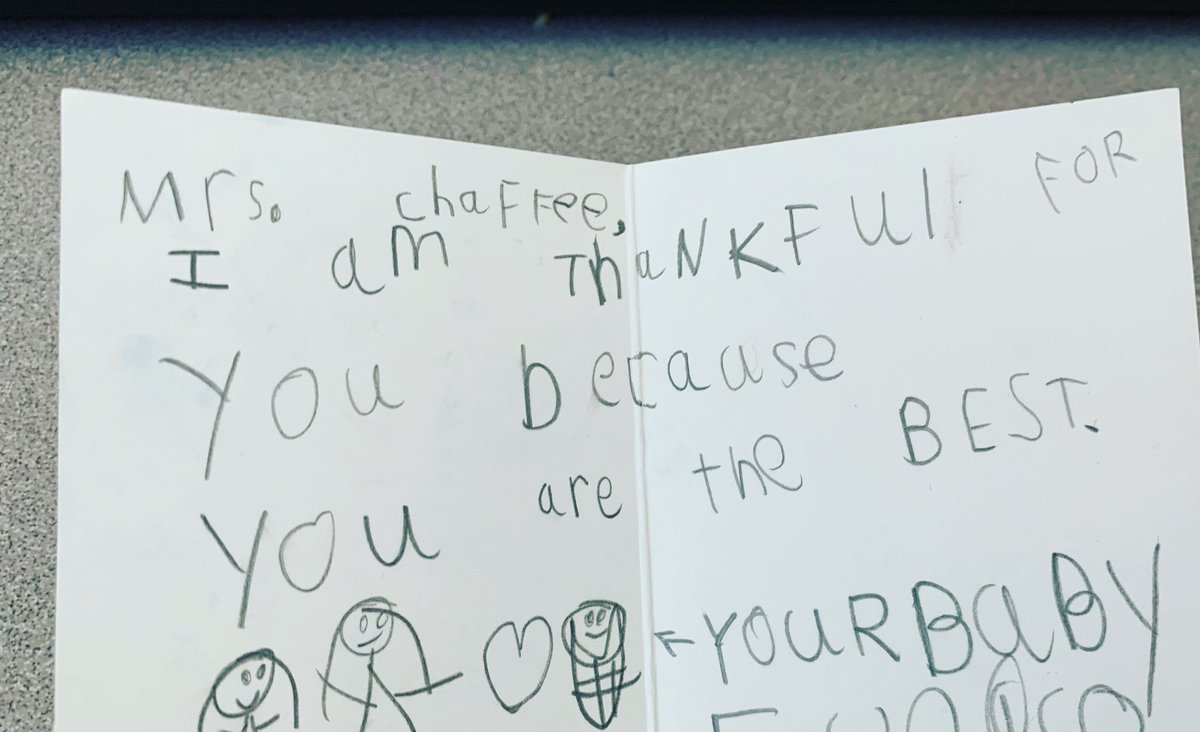 Mrs. chaFFee,
I am ThaNKFUl FOR
You because
you are the BEST.
←YOURBaBY